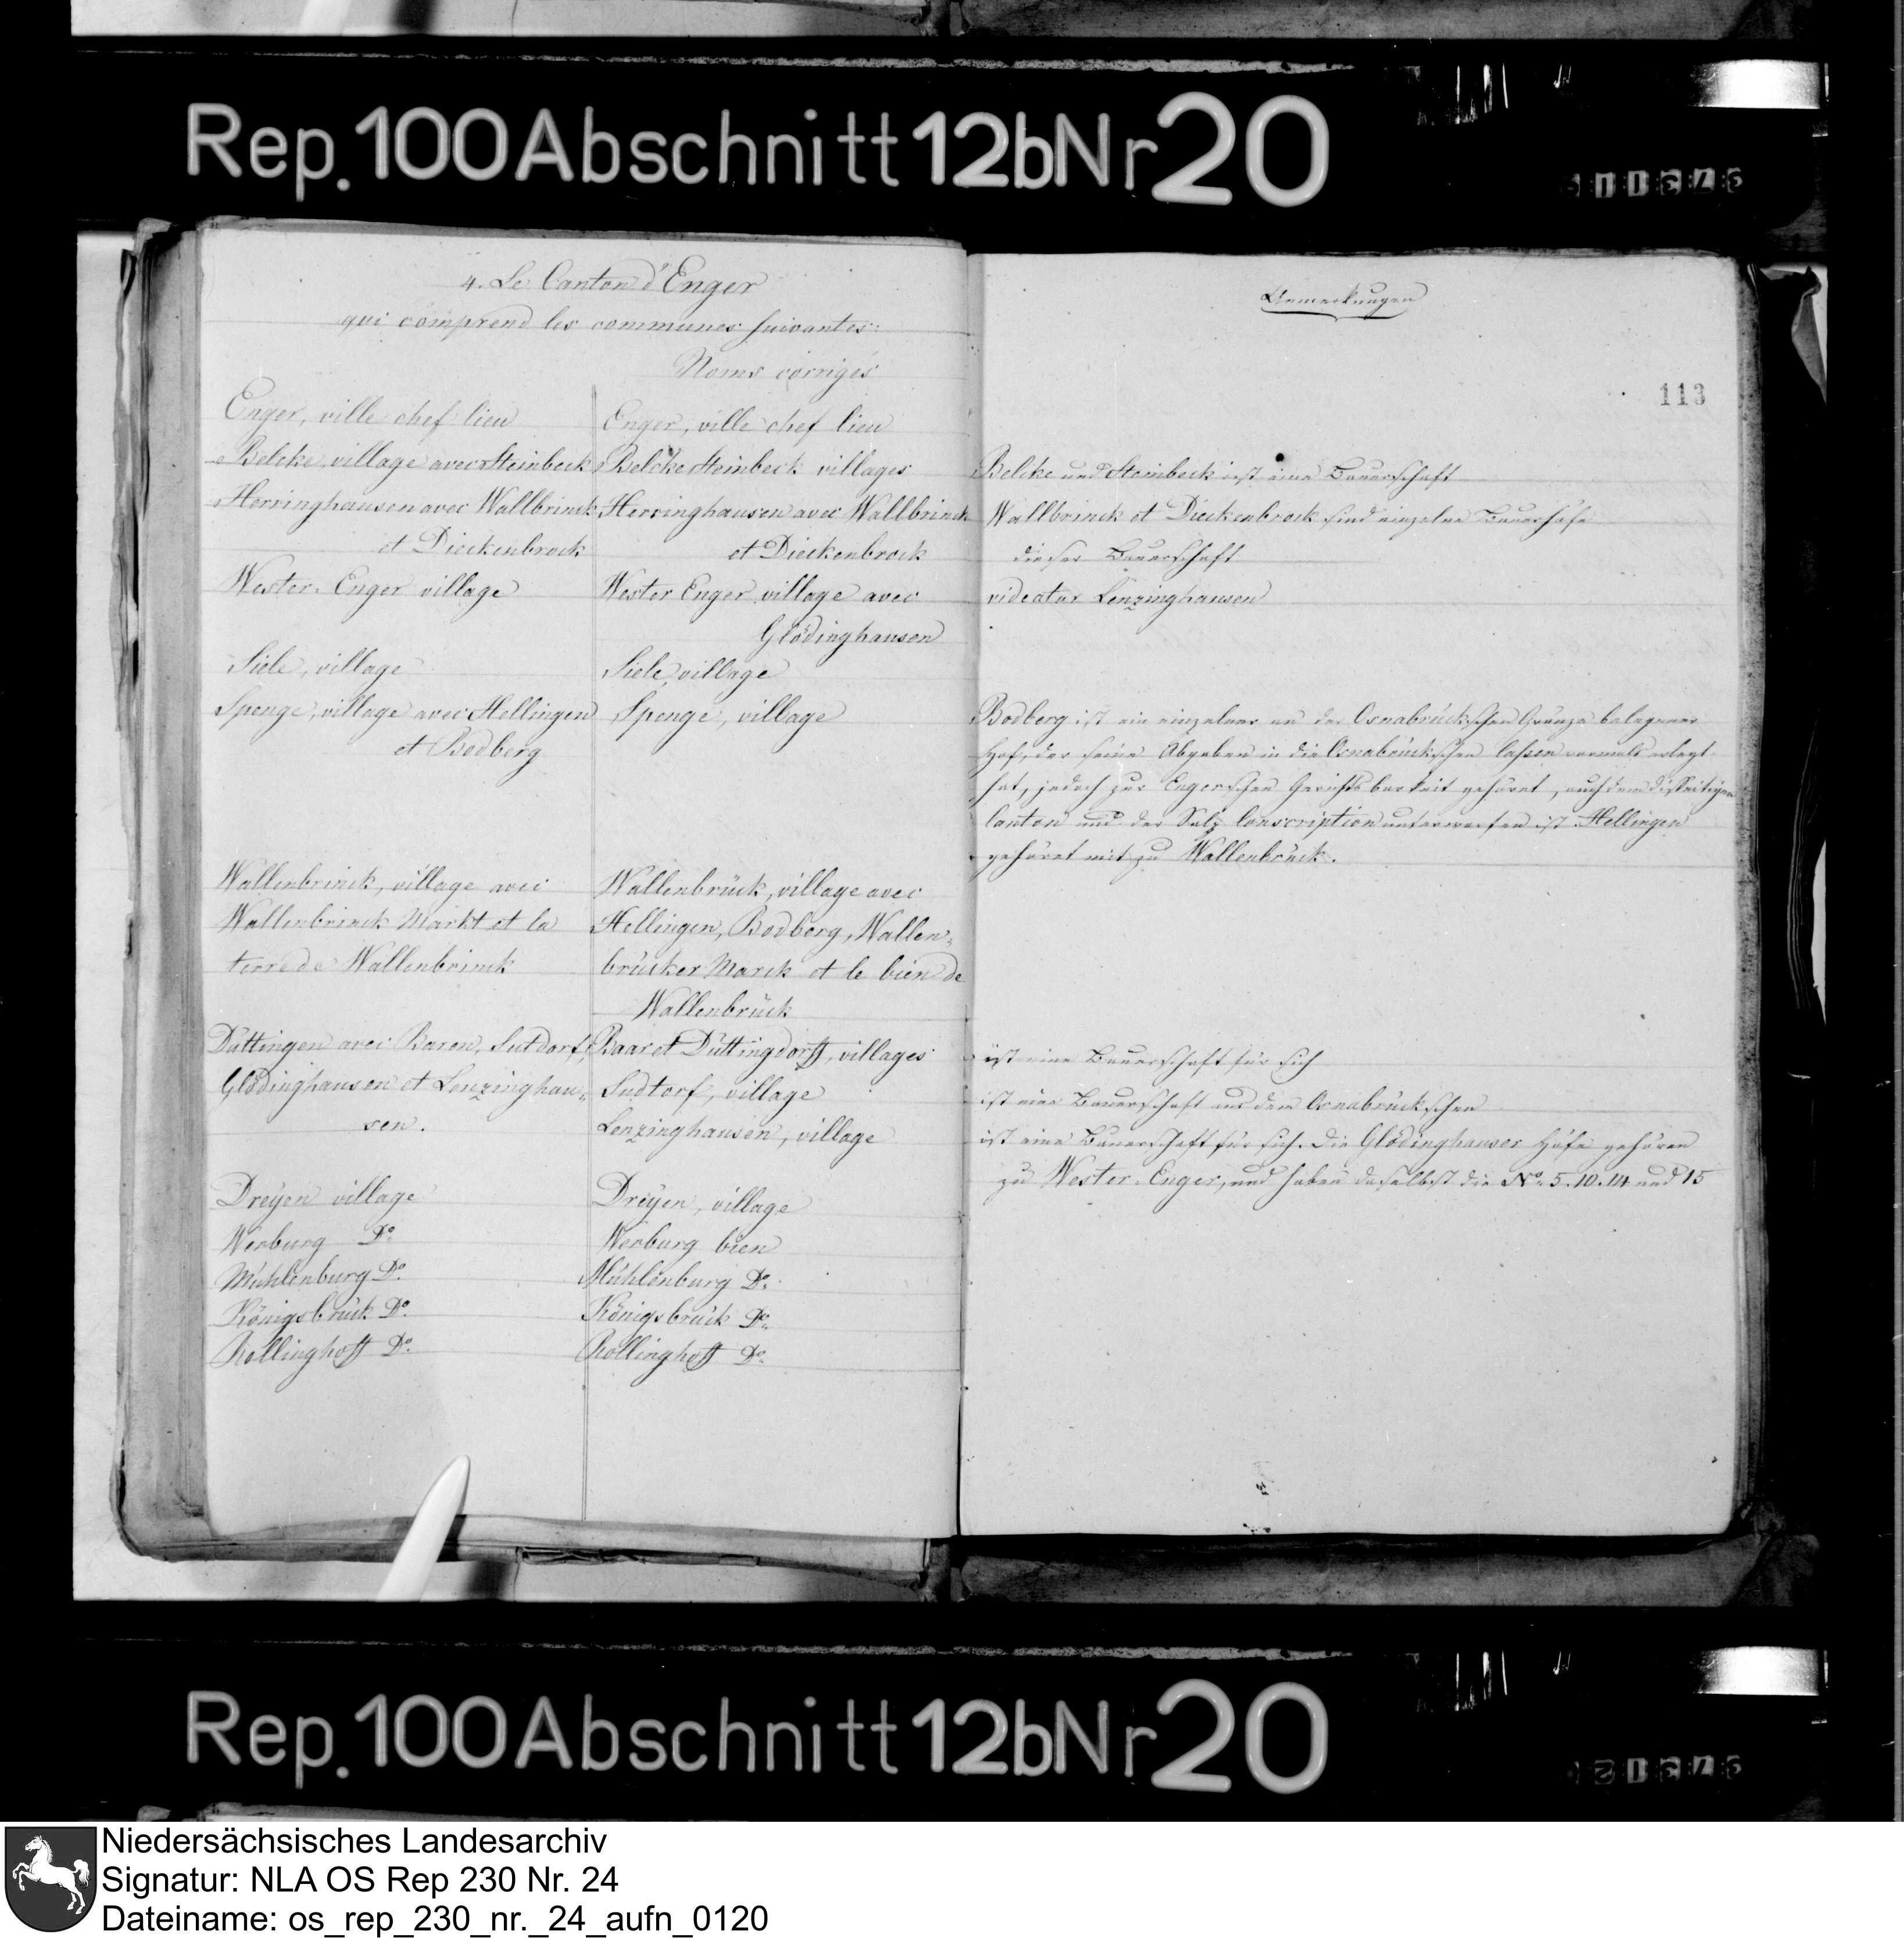 Rep. 100 Abschnitt 12b Nr 20
4. Le Canton d'Enger
qui comprend les communes suivantes:
Noms corrigés
Enger, ville chef lieu
Belcke, village avec Steinbeck
Herringhausen avec Wallbrinck
et Dieckenbrock
Wester-Enger village
Siele, village
Spenge, village avec Hellingen
et Bodberg
Wallenbrinck, village avec
Wallenbrinck Markt et la
terre de Wallenbrinck
Düttingen avec Baren, Sutdorf,
Glödinghausen et Lenzinghau-
sen.
Dreyen village
Werburg Do.
Mühlenburg Do.
Königsbrück Do.
Rollinghoff Do.
Enger, ville chef lieu
Belcke Steinbeck villages
Herringhausen avec Wallbrinck
et Dieckenbrock
Wester Enger village avec
Glödinghausen
Siele, village
Spenge, village
Wallenbrück, village avec
Hellingen, Bodberg, Wallen-
brücker Marck et le bien de
Wallenbrück
Baar et Düttingdorff, villages
Sudtorf, village
Lenzinghausen, village
Dreyen, village
Werburg bien
Mühlenburg Do.
Königsbrück Do.
Rollinghoff Do.
Bemerkungen
113
Belcke und Steinbeck ist eine Bauerschaft
Wallbrinck et Dieckenbrock sind einzelne Bauerhöfe
dieser Bauerschaft
videatur Lenzinghausen
Bodberg ist ein einzelner an der Osnabrückschen Gränze belegener
Hof, der seine Abgaben in die Osnabrückschen Cassen vormals erlegt
hat, jedoch zur Engerschen Gerichtsbarkeit gehöret, auch dem disseitigen
Canton und der Salz Conscription unterworfen ist. Hellingen
gehöret mit zu Wallenbrück.
ist eine Bauerschaft für sich
ist eine Bauerschaft aus dem Osnabrückschen
ist eine Bauerschaft für sich. Die Glödinghauser Höfe gehören
zu Wester-Enger, und haben daselbst die No. 5. 10. 14 und 15
Rep. 100 Abschnitt 12b Nr 20
Niedersächsisches Landesarchiv
Signatur: NLA OS Rep 230 Nr. 24
Dateiname: os_rep_230_nr._24_aufn_0120